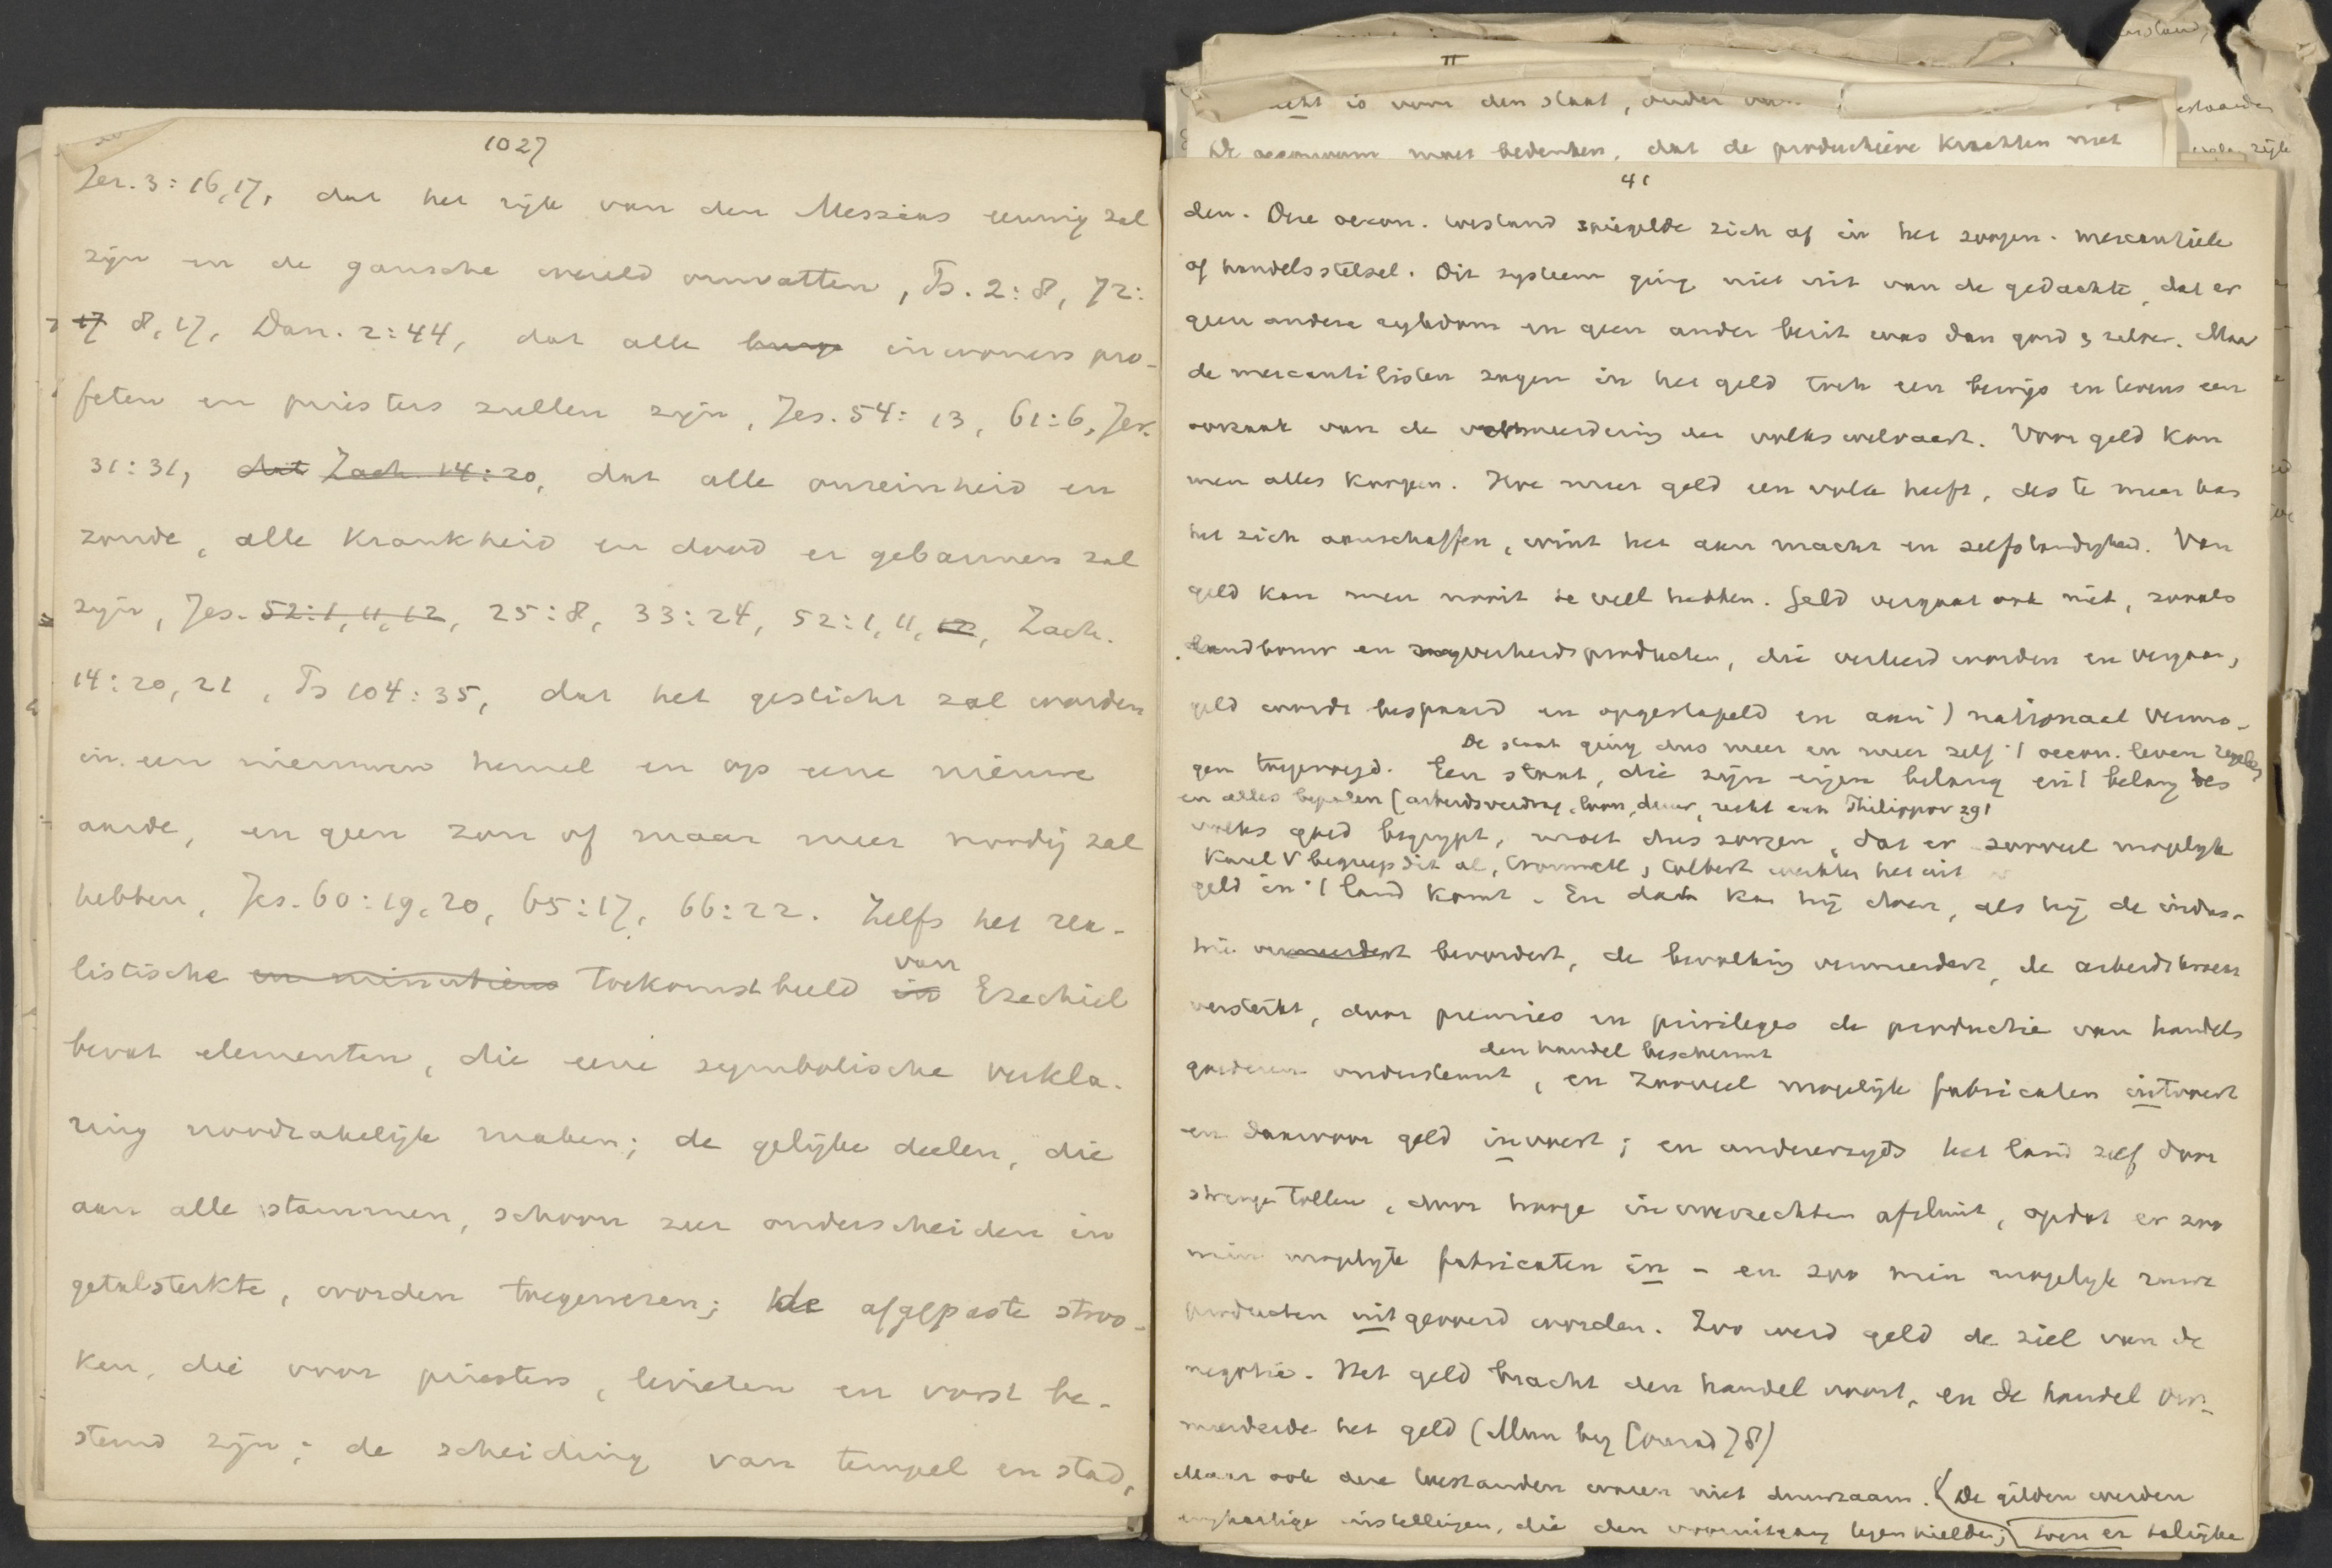 1027
Jer. 3:16,17, dat het rijk van den Messias eeuwig zal
zijn en de gansche wereld omvatten, Ps. 2:8, 72:
17 8,17, Dan. 2:44, dat alle inwoners pro-
feten en priesters zullen zijn, Jes. 54:13, 61:6, Jer.
31:31, dat Zach. 14:20, dat alle onreinheid en
zonde, alle krankheid en dood er gebannen zal
zijn, Jes. 52:1,11,12, 25:8, 33:24, 52:1,11,12, Zach.
14:20,21, Ps 104:35, dat het gesticht zal worden
in een nieuwen hemel en op eene nieuwe
aarde, en geen zon of maan meer noodig zal
hebben, Jes. 60:19,20, 65:17, 66:22. Zelfs het rea-
listische en minutieus toekomstbeeld in van Ezechiel
bevat elementen, die eene symbolische verkla-
ring noodzakelijk maken; de gelijke deelen, die
aan alle stammen, schoon zeer onderscheiden in
getalsterkte, worden toegewezen; de afgepaste stroo-
ken, die voor priesters, levieten en vorst be-
stemd zijn; de scheiding van tempel en stad,
II
is voor den staat, onder
De moet bedenken, dat de productieve krachten met
41
den. Deze oecon. toestand spiegelde zich af in het zoogen. mercantiele
of handelsstelsel. Dit systeem ging niet uit van de gedachte, dat er
geen andere rijkdom en geen ander bezit was dan goud & zilver. Maar
de mercantilisten zagen in het geld toch een bewijs en tevens een
oorzaak van de vermeerdering der volkswelvaart. Voor geld kan
men alles koopen. Hoe meer geld een volk heeft, des te meer kan
het zich aanschaffen, wint het aan macht en zelfstandigheid. Van
geld kan men nooit te veel hebben. Geld vergaat ook niet, zooals
landbouw en nijverheidsproducten, die verteerd worden en vergaan,
geld wordt bespaard en opgestapeld en aan 't nationaal vermo-
De staat ging dus meer en meer zelf 't oecon. leven regelen
gen toegevoegd. Een staat, die zijn eigen belang en 't belang des
en alles bepalen (arbeidsverdrag, loon, duur, recht enz Philippov. 29)
volks goed begrijpt, moet dus zorgen, dat er zooveel mogelijk
Karel V begreep dit al, Cromwell, Colbert werkten het uit
geld in 't land komt. En dat kan hij doen, als hij de indus-
trie vermeerdert bevordert, de bevolking vermeerdert, de arbeidskracht
versterkt, door premies en privileges de productie van handels
den handel beschermt
goederen ondersteunt, en zooveel mogelijk fabricaten uitvoert
en daarvoor geld invoert; en anderzijds het land zelf door
strenge tollen, door hooge invoerrechten afsluit, opdat er zoo
min mogelijk fabricaten in - en zoo min mogelijk ruwe
producten uitgevoerd worden. Zoo werd geld de ziel van de
negotie. Het geld bracht den handel voort, en de handel ver-
meerderde het geld (Mun bij Conrad 78)
Maar ook deze toestanden waren niet duurzaam. De gilden werden
enghartige instellingen, die den vooruitgang tegenhielden; toen er talrijke